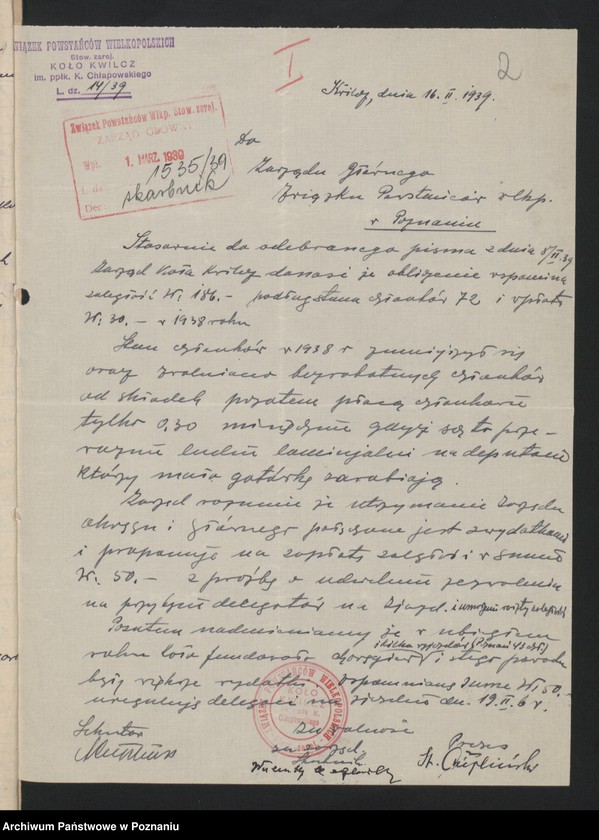 ZWIĄZEK POWSTAŃCÓW WIELKOPOLSKICH
Stow. zarej.
KOŁO KWILCZ
im. ppłk. K. Chłapowskiego
L. dz. 14/39
I
2
Kwilcz, dnia 16. II. 1939.
Związek Powstańców Wlkp. Stow. zarej.
ZARZĄD GŁÓWNY
Wpł. 1. MARZ. 1939
L. dz. 1535/39
skarbnik
Do
Zarządu Głównego
Związku Powstańców Wlkp.
w Poznaniu
Stosownie do odebranego pisma z dnia 8/II 39
Zarząd Koła Kwilcz donosi że obliczenie
zaległość zł. 186.- podług stanu członków 72 i wpłat
zł. 30.- w 1938 roku
Stan członków w 1938 r zmniejszył się
oraz zwolniano bezrobotnych członków
od składek pozatem płacą członkowie
tylko 0,30 miesięcznie gdyż są to prze-
ważnie ludzie na deputacie
którzy mało gotówkę zarabiają.
Zarząd rozumie że utrzymanie Zarządu
Okręgu i Głównego połączone jest z wydatkami
i proponuje na zapłatę zaległości w sumie
zł. 50.- z prośbą o udzielenie zezwolenia
na przybycie delegatów na Zjazd. i umorzenie reszty zaległości
Pozatem nadmieniamy że w ubiegłym
roku koło fundowało chorągiew i z tego powodu
były większe wydatki. Wspomnianą sumę zł. 50.-
uregulują delegaci na zjeździe dn. 19. II b r.
ZWIĄZEK POWSTAŃCÓW WIELKOPOLSKICH
KOŁO
KWILCZ
Sekretarz
Za zgodność
Prezes
Archiwum Państwowe w Poznaniu